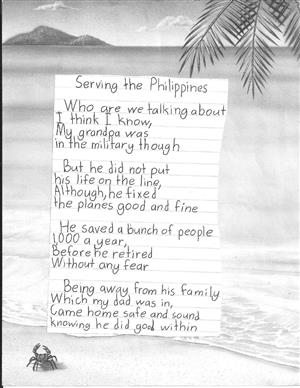 Serving the Philippines
Who are we talking about
I think I know,
My grandpa was
in the military though
But he did not put
his life on the line,
Although, he fixed
the planes good and fine
He saved a bunch of people
1,000 a year,
Before he retired
Without any fear
Being away from his family
Which my dad was in,
Came home safe and sound
knowing he did good within